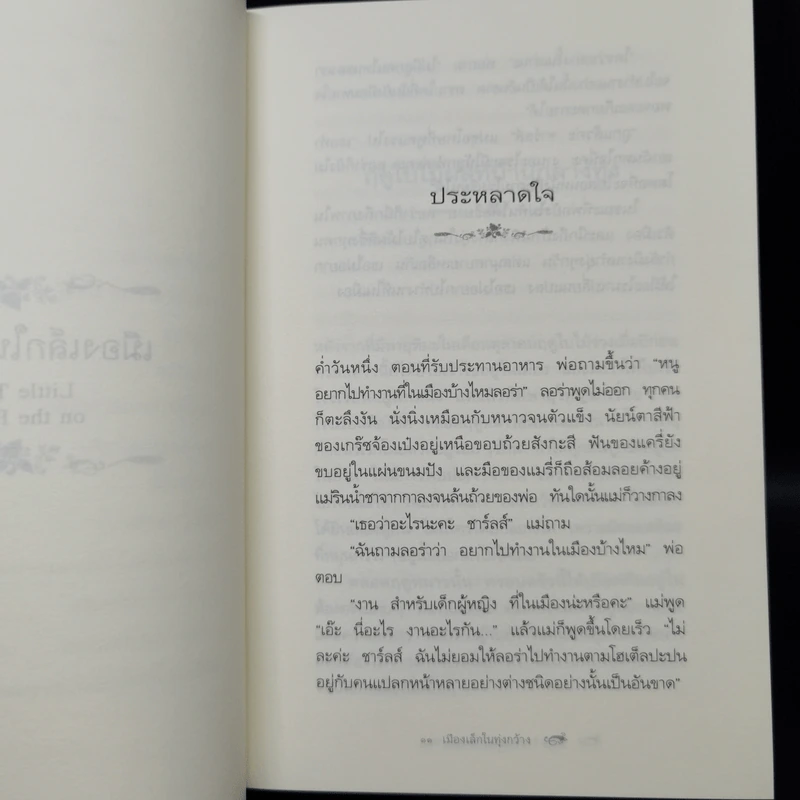 ประหลาดใจ
ค่ำวันหนึ่ง ตอนที่รับประทานอาหาร พ่อถามขึ้นว่า “หนู
อยากไปทำงานที่ในเมืองบ้างไหมลอร่า” ลอร่าพูดไม่ออก ทุกคน
ก็ตะลึงงัน นั่งนิ่งเหมือนกับหนาวจนตัวแข็ง นัยน์ตาสีฟ้า
ของเกร๊ซจ้องเป๋งอยู่เหนือขอบถ้วยสังกะสี ฟันของแครี่ยัง
ขบอยู่ในแผ่นขนมปัง และมือของแมรี่ก็ถือส้อมลอยค้างอยู่
แม่รินน้ำชาจากกาลงจนล้นถ้วยของพ่อ ทันใดนั้นแม่ก็วางกาลง
“เธอว่าอะไรนะคะ ชาร์ลส์” แม่ถาม
“ฉันถามลอร่าว่า อยากไปทำงานในเมืองบ้างไหม” พ่อ
ตอบ
“งาน สำหรับเด็กผู้หญิง ที่ในเมืองน่ะหรือคะ” แม่พูด
“เอ๊ะ นี่อะไร งานอะไรกัน...” แล้วแม่ก็พูดขึ้นโดยเร็ว “ไม่
ละค่ะ ชาร์ลส์ ฉันไม่ยอมให้ลอร่าไปทำงานตามโฮเต็ลปะปน
อยู่กับคนแปลกหน้าหลายอย่างต่างชนิดอย่างนั้นเป็นอันขาด”
๑๑ เมืองเล็กในทุ่งกว้าง